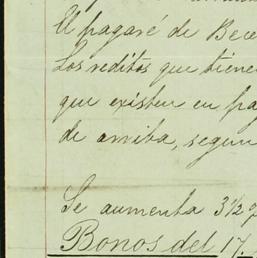 El pagaré de Bece
Los reditos que tiene
que existen en pa
de arriba, segun
Se aumenta 3 1/2 q
Bonos del 17.